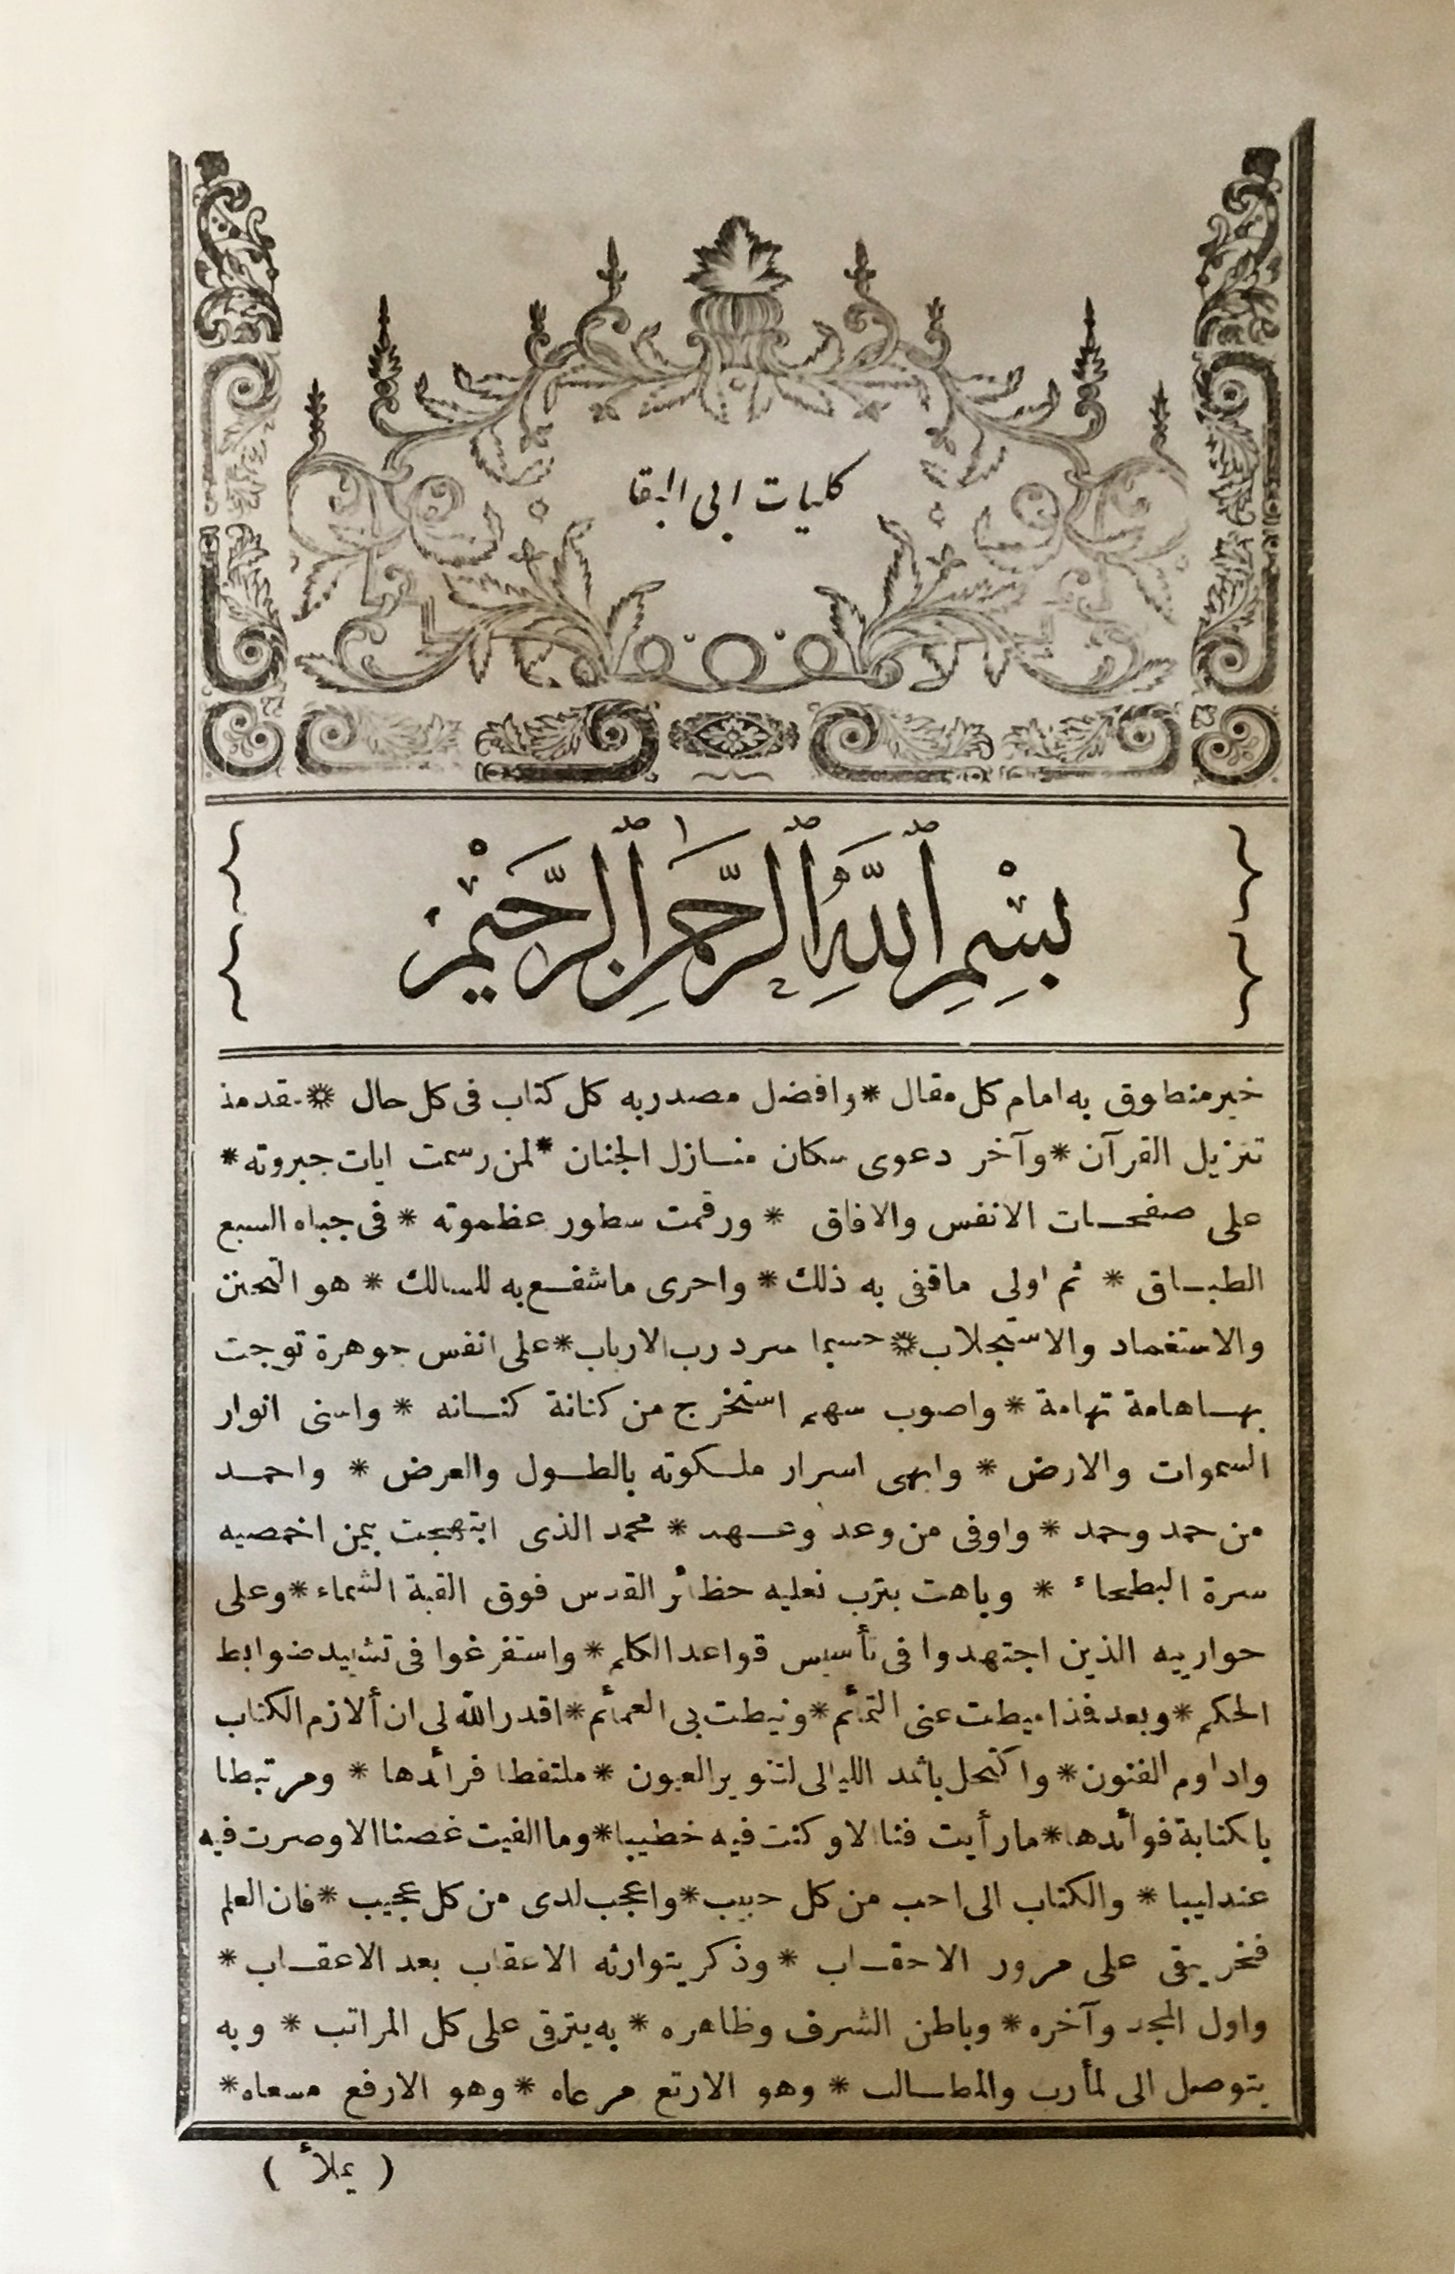 كليات ابى البقا
بِسْمِ ٱللَّهِ ٱلرَّحْمٰنِ ٱلرَّحِيْمِ
خير منطوق به امام كل مقال * وافضل مصدر به كل كتاب فى كل حال * مقدمة
تنزيل القرآن * وآخر دعوى سكان منازل الجنان * لمن رسمت ايات جبروته *
على صفحات الانفس والافاق * ورقمت سطور عظموته * فى جباه السبع
الطباق * ثم اولى ماقفى به ذلك * واحرى ماشفع به للسالك * هو التحنن
والاستغماد والاستجلاب * حسبما سرد رب الارباب * على انفس جوهرة توجت
بها هامة تهامة * واصوب سهم استخرج من كنانة كنانه * واسنى انوار
السموات والارض * وابهى اسرار ملكوته بالطول والعرض * واحمد
من حمد وحمد * واوفى من وعد وعهد * محمد الذى ابتهجت بيمن اخمصيه
سرة البطحاء * وباهت بترب نعليه حظائر القدس فوق القبة الشماء * وعلى
حوارييه الذين اجتهدوا فى تأسيس قواعد الكلم * واستفرغوا فى تشييد ضوابط
الحكم * وبعد فمذ اميطت عنى التمائم * ونيطت بى العمائم * اقدر الله لى ان ألازم الكتاب
واداوم الفنون * واكتحل باثمد الليالى لتنوير العيون * ملتقطا فرائدها * ومرتبطا
بالكتابة فوائدها * مارأيت فنا الا وكنت فيه خطيبا * وما الفيت غصنا الا وصرت فيه
عندليبا * والكتاب الى احب من كل حبيب * واعجب لدى من كل عجيب * فان العلم
فخر يبقى على مرور الاحقاب * وذكر يتوارثه الاعقاب بعد الاعقاب *
واول المجد وآخره * وباطن الشرف وظاهره * به يترقى على كل المراتب * وبه
يتوصل الى المأرب والمطالب * وهو الارتع مرعاه * وهو الارفع مسعاه *
( يملأ )